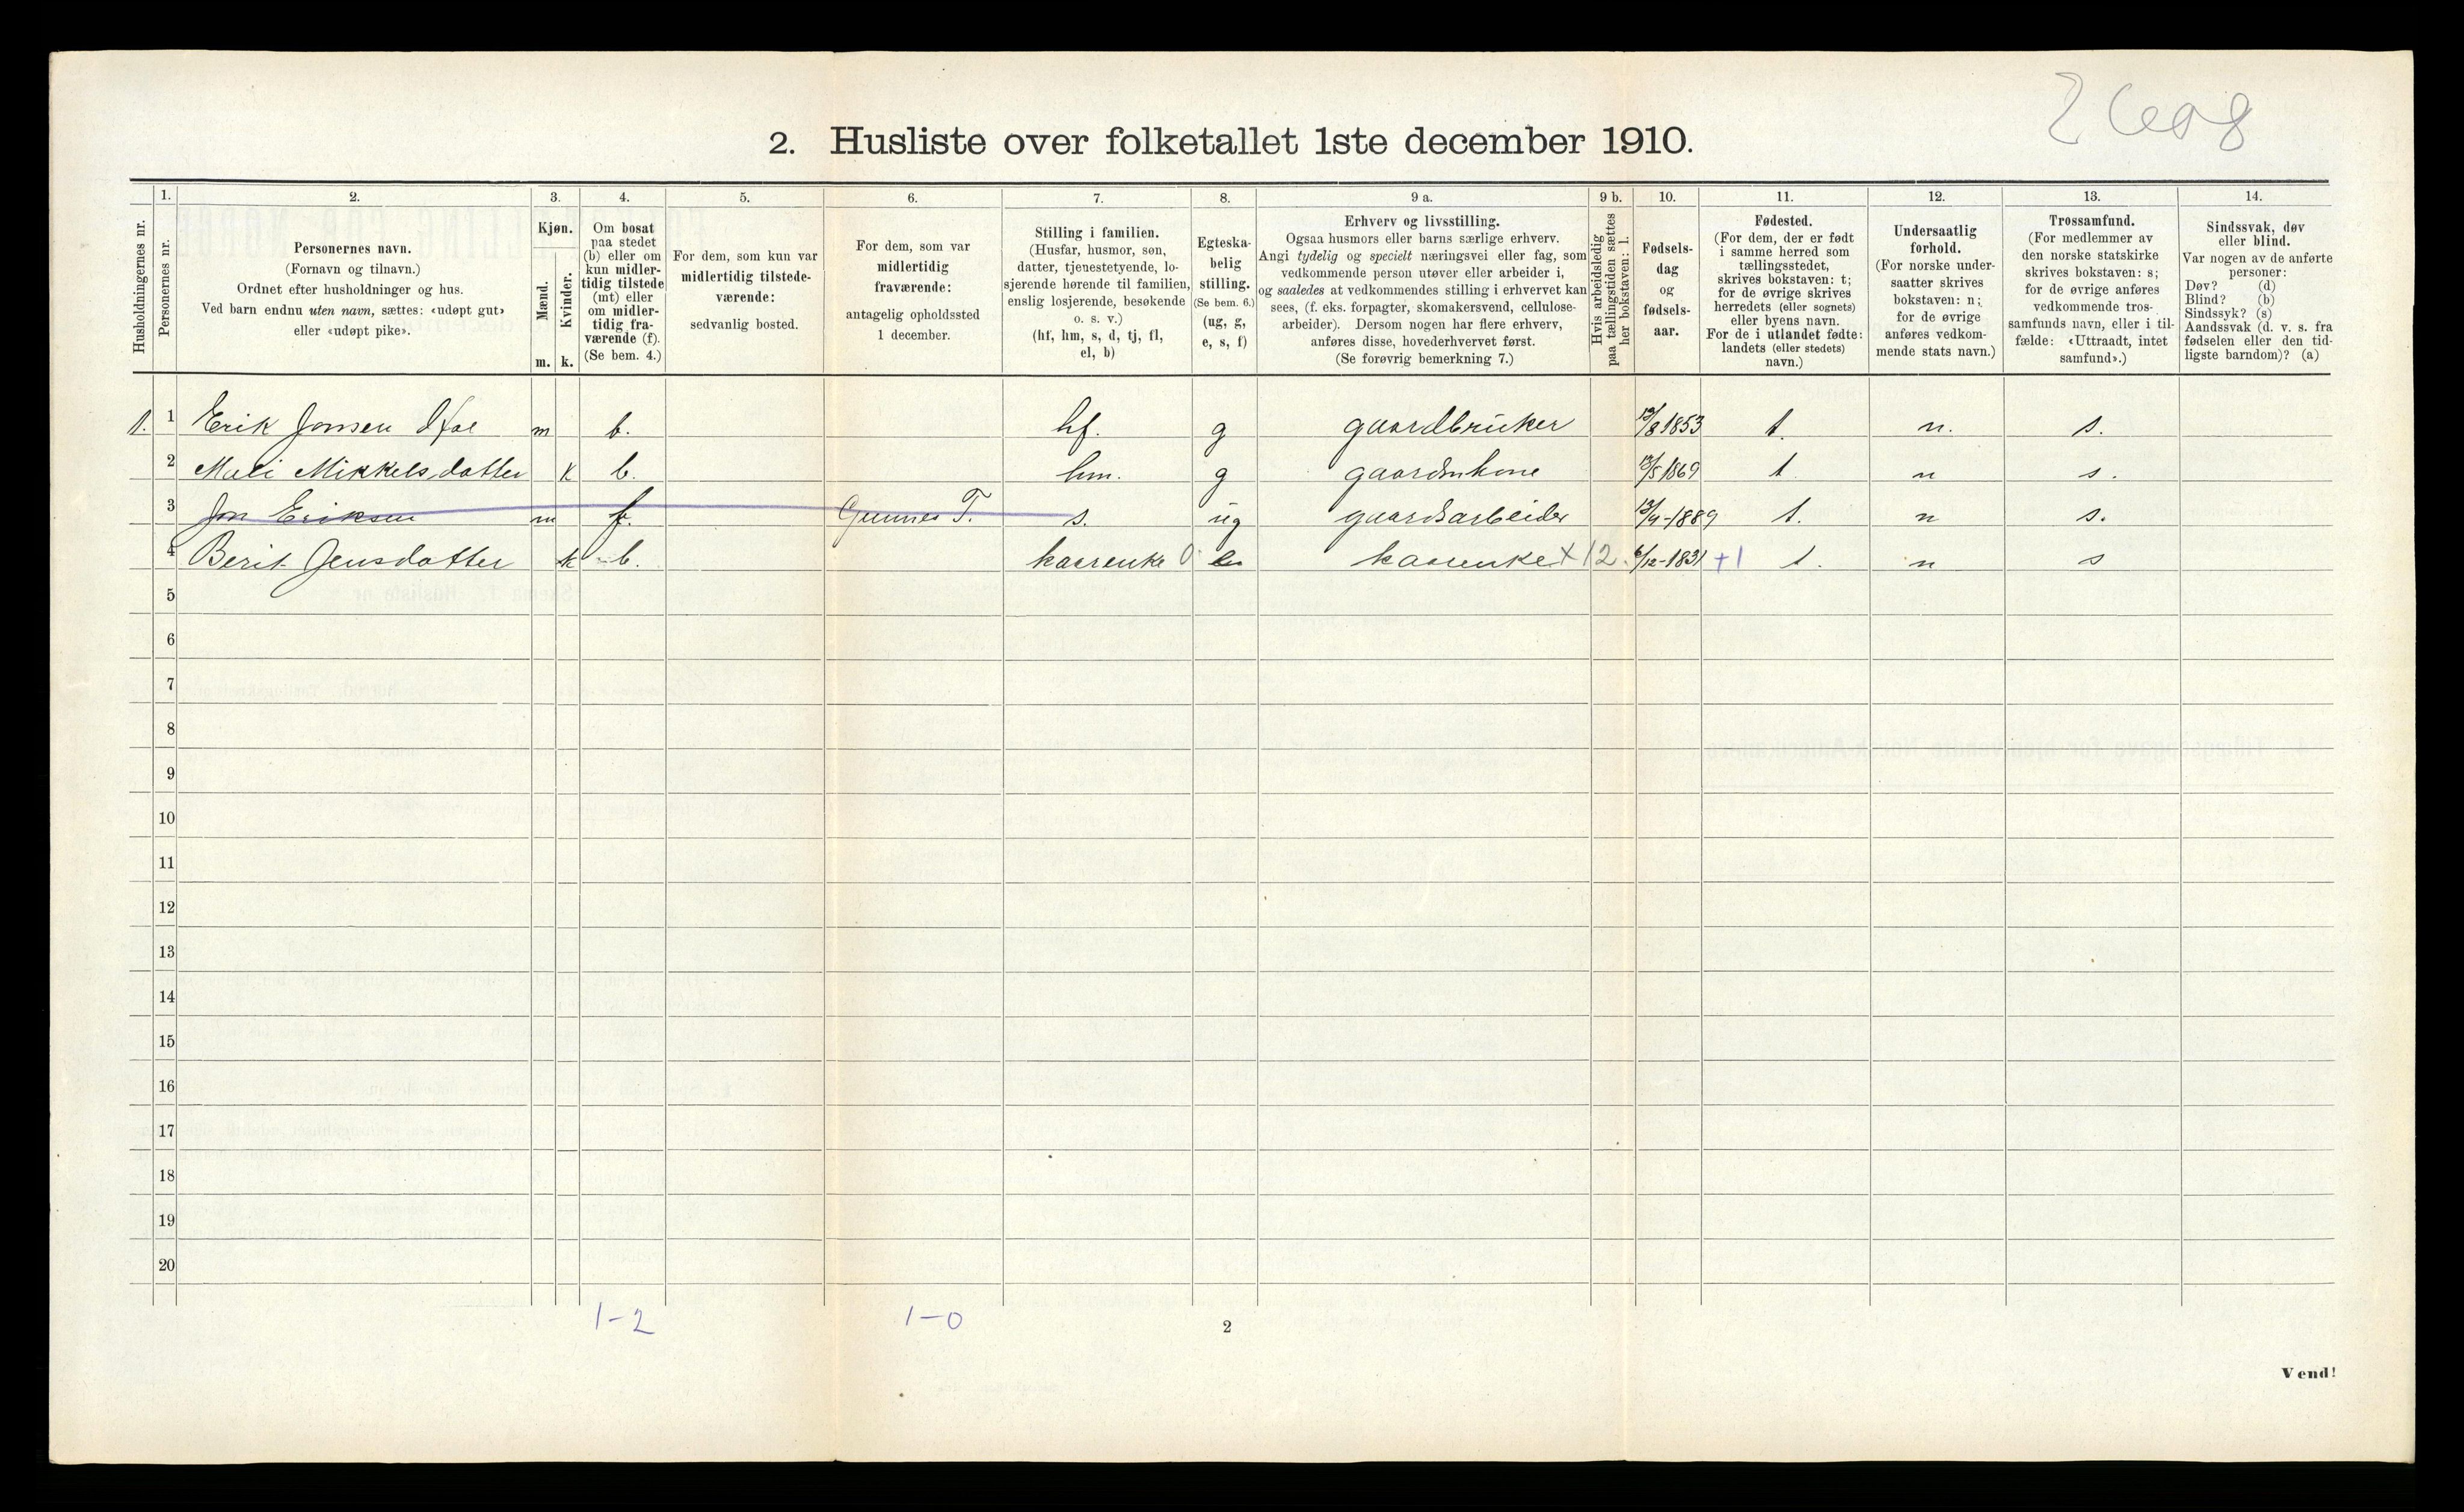 2. Husliste over folketallet 1ste december 1910.
Husholdningernes nr.
1.
Personernes nr.
2.
Personernes navn.
(Fornavn og tilnavn.)
Ordnet efter husholdninger og hus.
Ved barn endnu uten navn, sættes: «udøpt gut»
eller «udøpt pike».
3.
Kjøn.
Mænd.
Kvinder.
m. k.
4.
Om bosat
paa stedet
(b) eller om
kun midler-
tidig tilstede
(mt) eller
om midler-
tidig fra-
værende (f).
(Se bem. 4.)
5.
For dem, som kun var
midlertidig tilstede-
værende:
sedvanlig bosted.
6.
For dem, som var
midlertidig
fraværende:
antagelig opholdssted
1 december.
7.
Stilling i familien.
(Husfar, husmor, søn,
datter, tjenestetyende, lo-
sjerende hørende til familien,
enslig losjerende, besøkende
o. s. v.)
(hf, hm, s, d, tj, fl,
el, b)
8.
Egteska-
belig
stilling.
(Se bem. 6.)
(ug, g,
e, s, f)
9 a.
Erhverv og livsstilling.
Ogsaa husmors eller barns særlige erhverv.
Angi tydelig og specielt næringsvei eller fag, som
vedkommende person utøver eller arbeider i,
og saaledes at vedkommendes stilling i erhvervet kan
sees, (f. eks. forpagter, skomakersvend, cellulose-
arbeider). Dersom nogen har flere erhverv,
anføres disse, hovederhvervet først.
(Se forøvrig bemerkning 7.)
9 b.
Hvis arbeidsledig
paa tællingstiden sættes
her bokstaven: l.
10.
Fødsels-
dag
og
fødsels-
aar.
11.
Fødested.
(For dem, der er født
i samme herred som
tællingsstedet,
skrives bokstaven: t;
for de øvrige skrives
herredets (eller sognets)
eller byens navn.
For de i utlandet fødte:
landets (eller stedets)
navn.)
12.
Undersaatlig
forhold.
(For norske under-
saatter skrives
bokstaven: n;
for de øvrige
anføres vedkom-
mende stats navn.)
13.
Trossamfund.
(For medlemmer av
den norske statskirke
skrives bokstaven: s;
for de øvrige anføres
vedkommende tros-
samfunds navn, eller i til-
fælde: «Uttraadt, intet
samfund».)
14.
Sindssvak, døv
eller blind.
Var nogen av de anførte
personer:
Døv? (d)
Blind? (b)
Sindssyk? (s)
Aandssvak (d. v. s. fra
fødselen eller den tid-
ligste barndom)? (a)
1. 1 Erik Jonsen m b. hf. g gaardbruker 13/8 1853 t. n. s.
2 Mali Mikkelsdatter k b. hm. g gaardmkone 13/5 1869 t. n s.
3 Jon Eriksen m f. Gunnes T. s. ug gaardsarbeider 13/4-1889 t. n s.
4 Berit Jensdatter k b. kaarenke 0 kaarenke x 12. 6/12-1831 +1 t. n s
5
6
7
8
9
10
11
12
13
14
15
16
17
18
19
20
1-2 1-0
2
Vend!